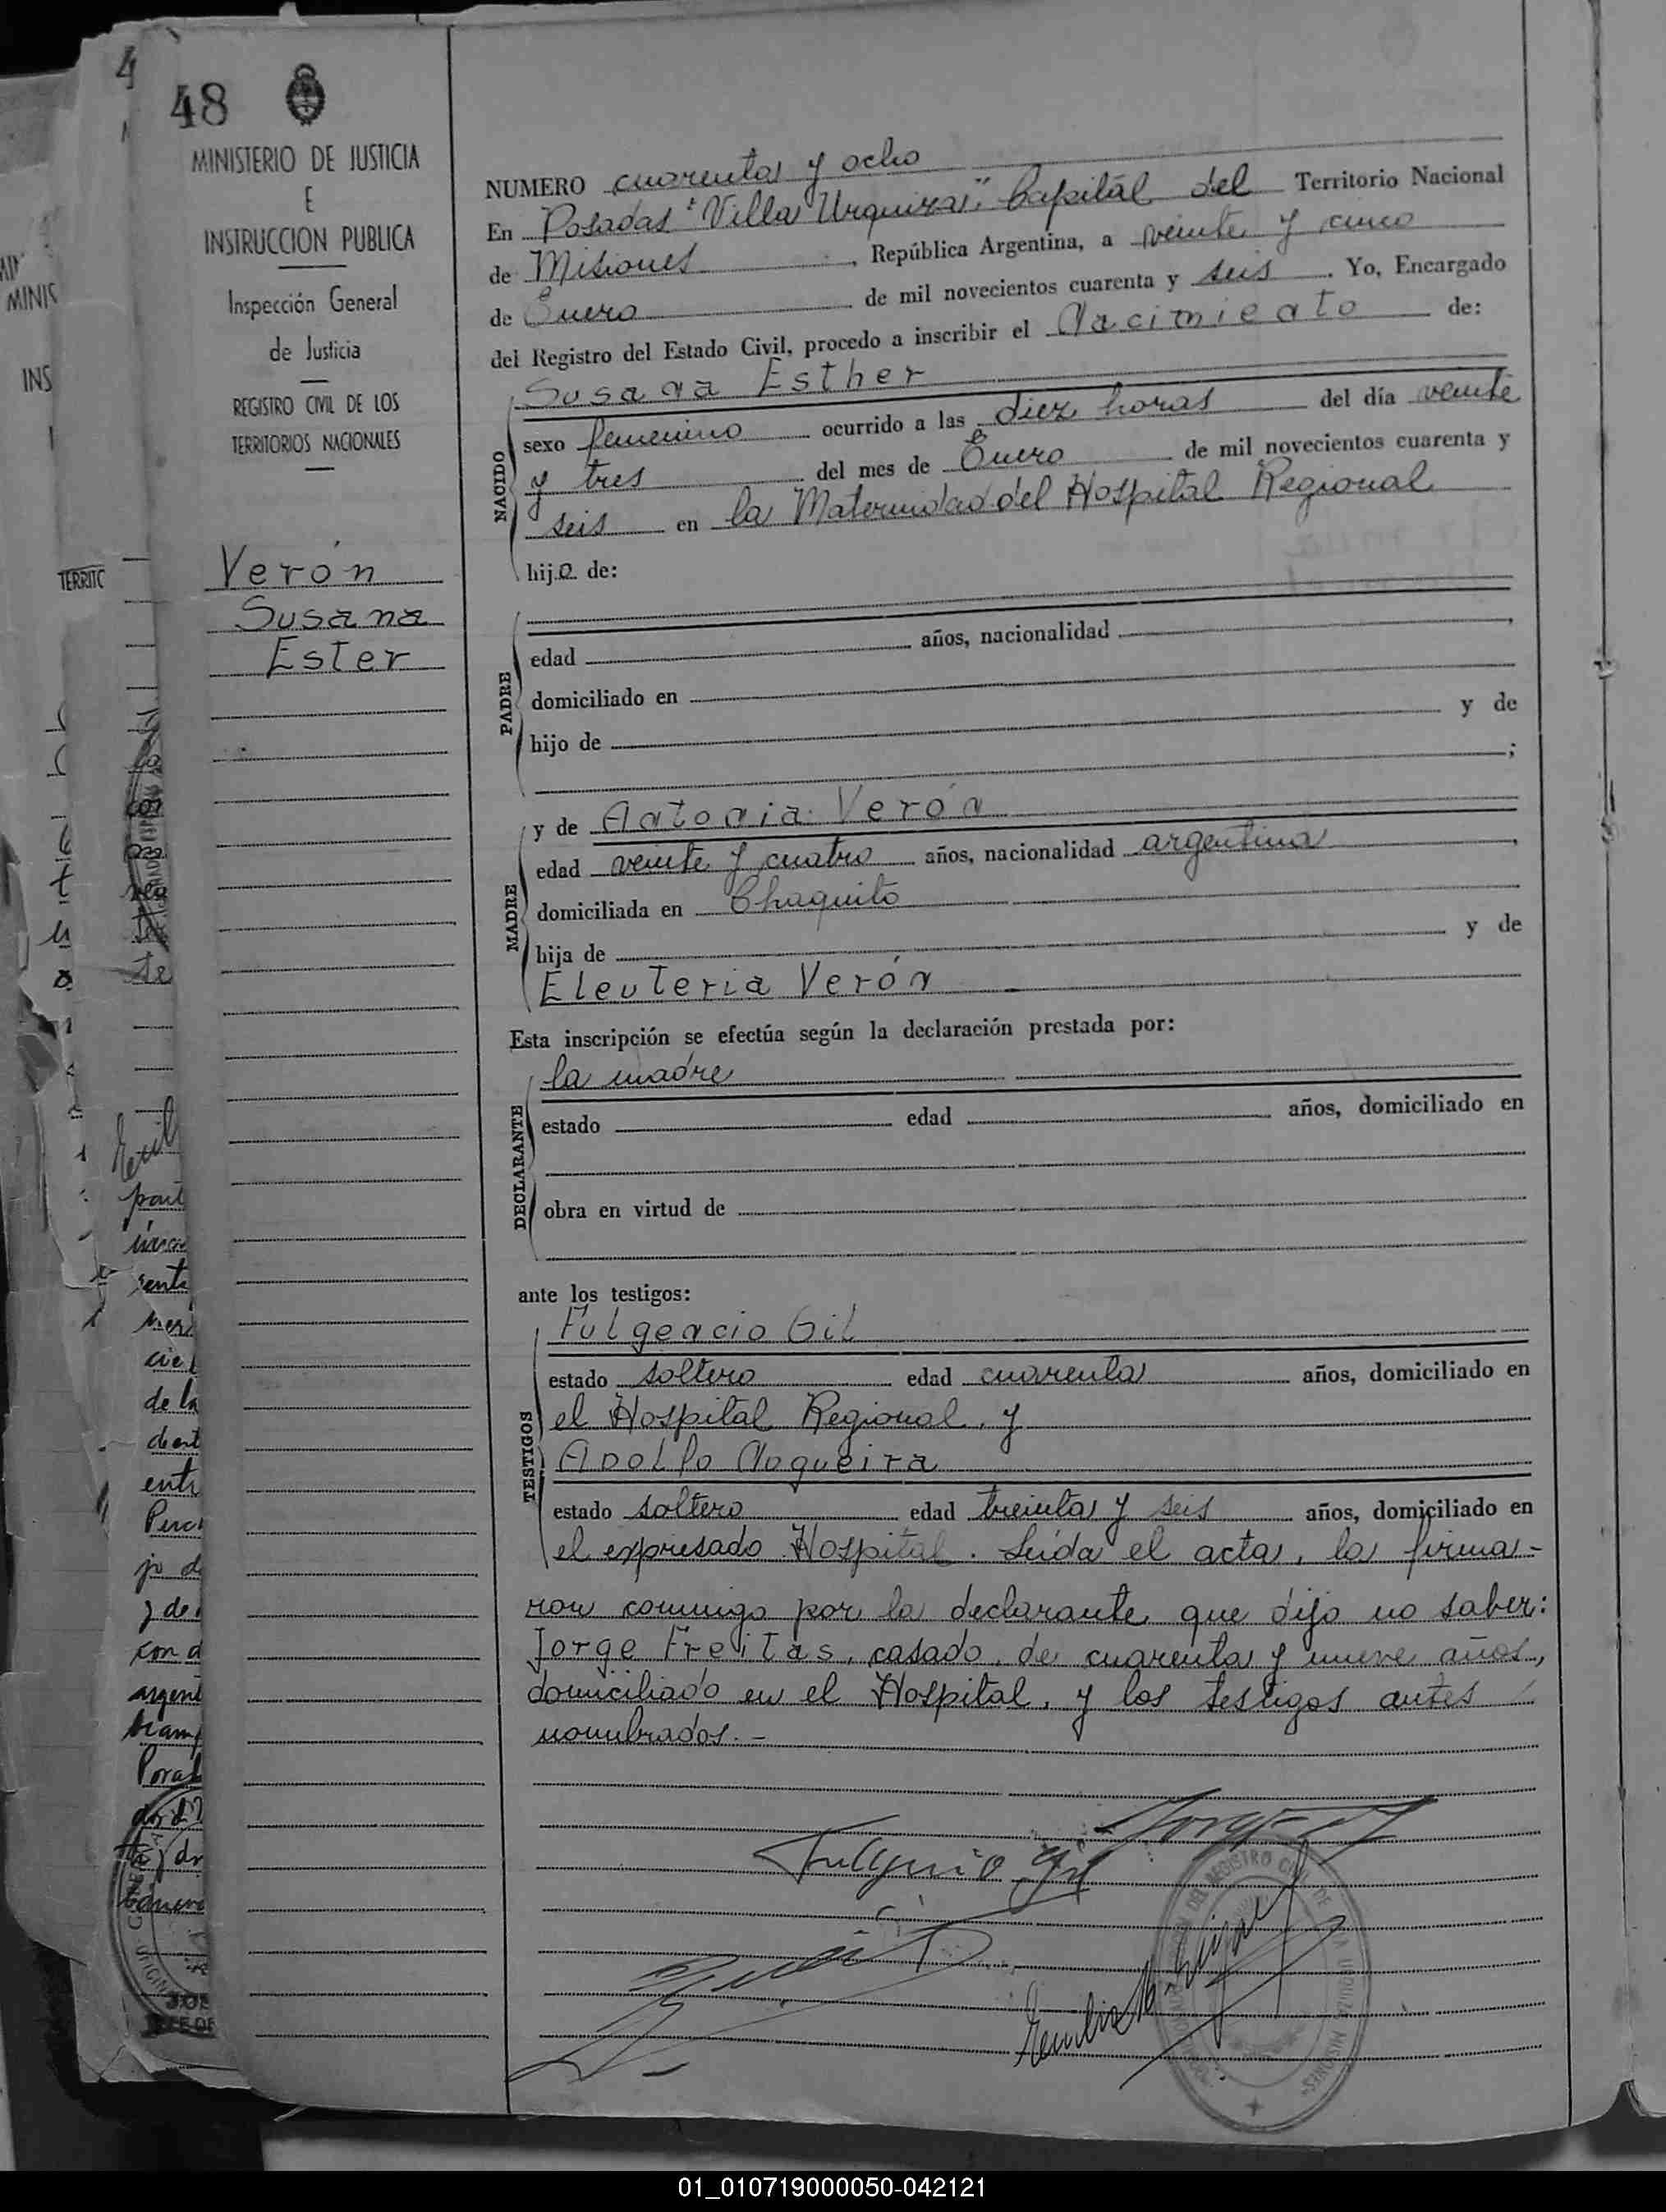 48
MINISTERIO DE JUSTICIA
E
INSTRUCCION PUBLICA
Inspección General
de Justicia
REGISTRO CIVIL DE LOS
TERRITORIOS NACIONALES
Verón
Susana
Ester
NUMERO cuarenta y ocho
En Posadas "Villa Urquiza", Capital del Territorio Nacional
de Misiones, República Argentina, a veinte y cinco
de Enero de mil novecientos cuarenta y seis. Yo, Encargado
del Registro del Estado Civil, procedo a inscribir el Nacimiento de:
Susana Esther
NACIDO
sexo femenino ocurrido a las diez horas del día veinte
y tres del mes de Enero de mil novecientos cuarenta y
seis en la Maternidad del Hospital Regional
hija de:
PADRE
edad años, nacionalidad ,
domiciliado en
hijo de y de
;
MADRE
y de Antonia Verón
edad veinte y cuatro años, nacionalidad argentina,
domiciliada en Chaquito
hija de y de
Eleuteria Verón
Esta inscripción se efectúa según la declaración prestada por:
DECLARANTE
la madre
estado edad años, domiciliado en
obra en virtud de
ante los testigos:
TESTIGOS
Fulgencio Gil
estado soltero edad cuarenta años, domiciliado en
el Hospital Regional, y
Adolfo Nogueira
estado soltero edad treinta y seis años, domiciliado en
el expresado Hospital. Leída el acta, la firma-
ron conmigo por la declarante que dijo no saber:
Jorge Freitas, casado, de cuarenta y nueve años,
domiciliado en el Hospital, y los testigos antes
nombrados.-
Fulgencio Gil
DEL REGISTRO CIVIL DE
URQUIZA MISIONES
01_010719000050-042121